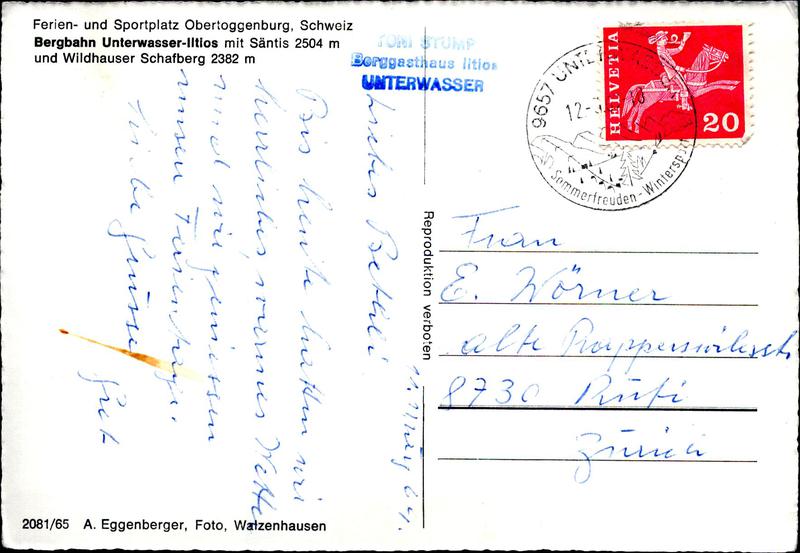 Ferien- und Sportplatz Obertoggenburg, Schweiz
Bergbahn Unterwasser-Iltios mit Säntis 2504 m
und Wildhauser Schafberg 2382 m
TONI STUMP
Berggasthaus Iltios
UNTERWASSER
9657 UNTE
12.-
Sommerfreuden - Wintersport
HELVETIA
20
11. März 67.
Liebes Bethli
Bis heute hatten wir
herrliches, warmes Wetter
und wir geniessen
unsere Ferientage.
Liebe Grüsse
Gret
Reproduktion verboten
Frau
E. Wörner
alte Rapperswilerstr.
8730 Rüti
Zürich
2081/65 A. Eggenberger, Foto, Walzenhausen